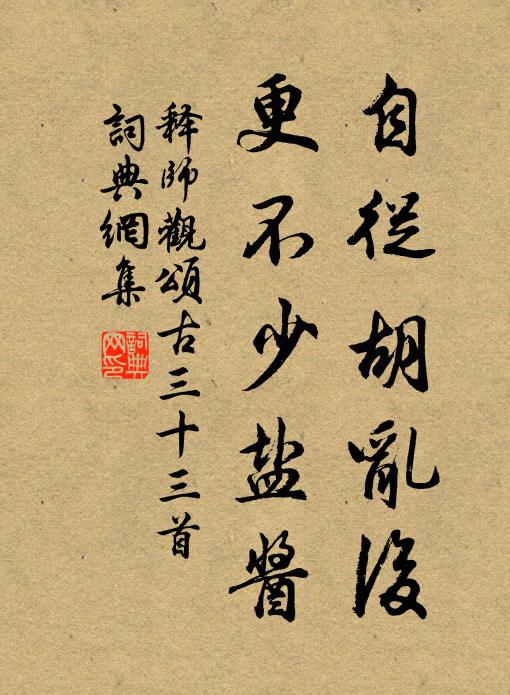 自從胡亂後
更不少盐醬
释師觀頌古三十三首
詞典網集
詞典网印